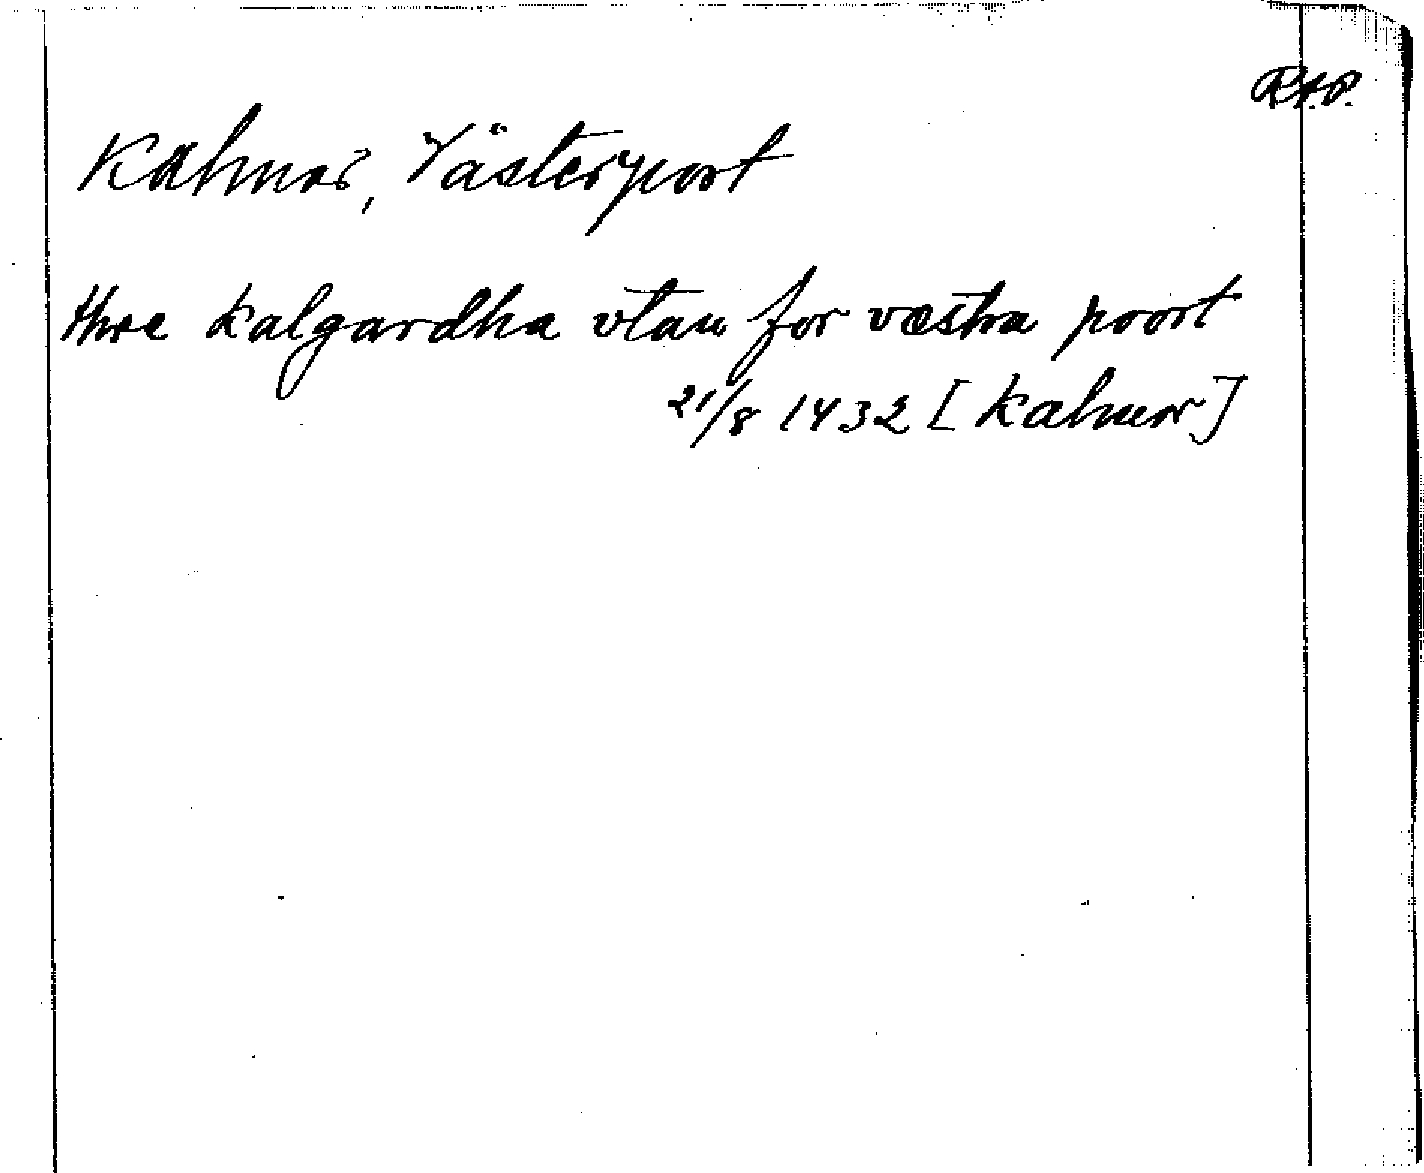 R.A.P.
Kalmar, Västerport
thre kalgardha vtan for vestra poort
21/8 1432 [Kalmar]